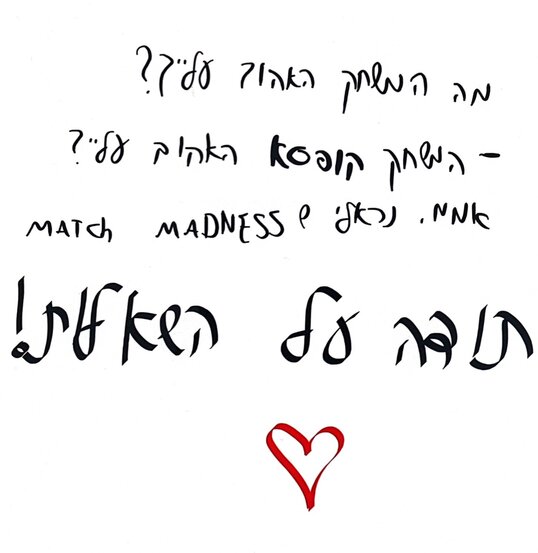 מה המשחק האהוב עלייך?
- המשחק קופסא האהוב עליי?
אממ. נראלי ש MATCh MADNESS
תודה על השאלות!